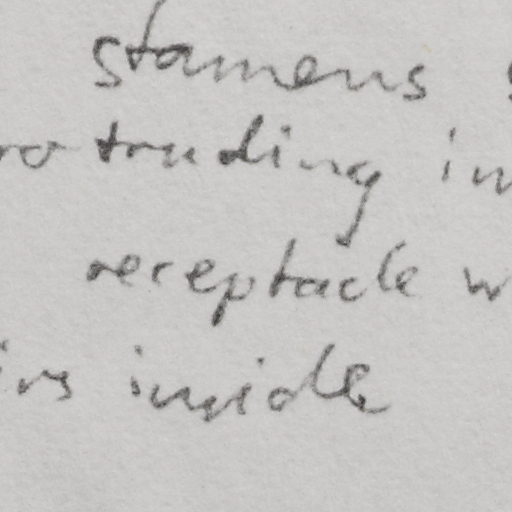 stamens
rotruding in
receptacle w
irs inside